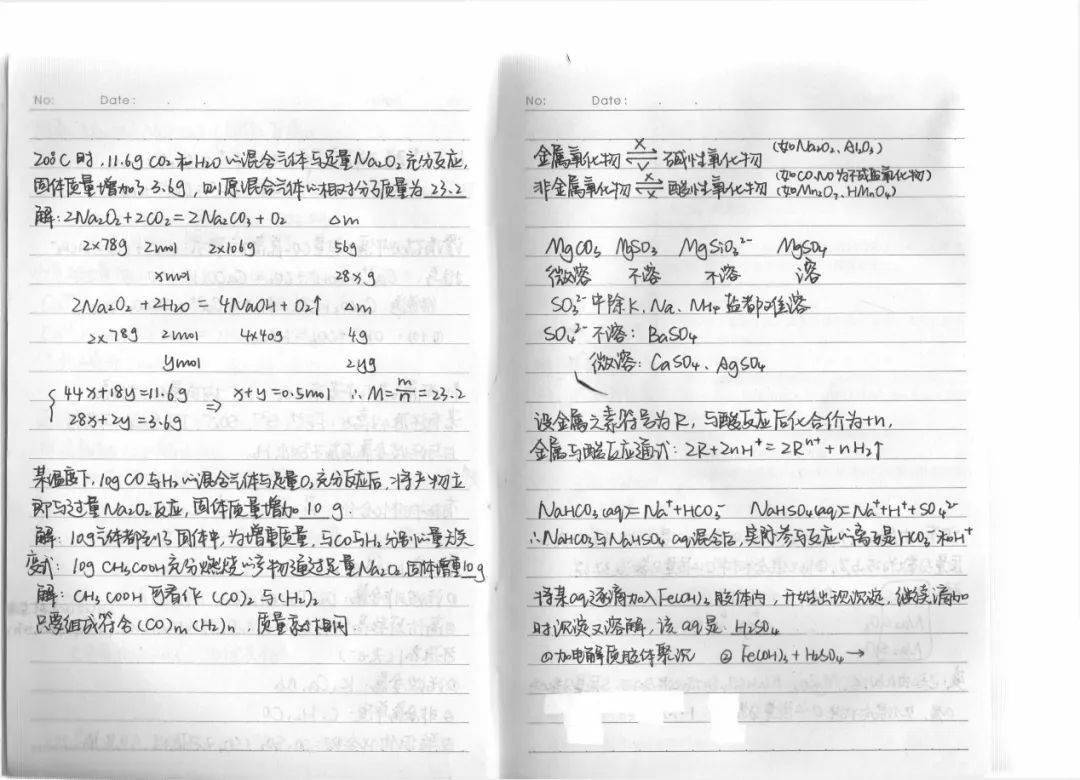 No: Date: . .
200℃ 时,11.6g CO₂ 和 H₂O 的混合气体与足量 Na₂O₂ 充分反应,
固体质量增加了 3.6g,则原混合气体的相对分子质量为 23.2
解:2Na₂O₂+2CO₂=2Na₂CO₃+O₂ Δm
2×78g 2mol 2×106g 56g
xmol 28xg
2Na₂O₂+2H₂O=4NaOH+O₂↑ Δm
2×78g 2mol 4×40g 4g
ymol 2yg
{ 44x+18y=11.6g ⇒ x+y=0.5mol ∴M=m/n=23.2
28x+2y=3.6g
某温度下,10g CO与H₂的混合气体与足量O₂充分反应后,将产物立
即与过量Na₂O₂反应,固体质量增加 10 g.
解:10g气体都到了固体中,为增重质量,与CO与H₂分别的量无关
变式:10g CH₃COOH充分燃烧的产物通过足量Na₂O₂,固体增重10g
解:CH₃COOH可看作 (CO)₂与(H₂)₂
只要组成符合(CO)m(H₂)n,质量都相同
No: Date: . .
金属氧化物 ⇌ 碱性氧化物 (如Na₂O₂、Al₂O₃)
非金属氧化物 ⇌ 酸性氧化物 (如CO、NO为不成盐氧化物)
(如Mn₂O₇、HMnO₄)
MgCO₃ MgSO₃ MgSiO₃²⁻ MgSO₄
微溶 不溶 不溶 溶
SO₃²⁻中除K、Na、NH₄盐都难溶
SO₄²⁻ 不溶:BaSO₄
微溶:CaSO₄、AgSO₄
设金属元素符号为R,与酸反应后化合价为+n,
金属与酸反应通式:2R+2nH⁺=2Rⁿ⁺+nH₂↑
NaHCO₃(aq)=Na⁺+HCO₃⁻ NaHSO₄(aq)=Na⁺+H⁺+SO₄²⁻
∴NaHCO₃与NaHSO₄ aq混合后,实际参与反应的离子是HCO₃⁻和H⁺
将某aq逐滴加入Fe(OH)₃胶体内,开始出现沉淀,继续滴加
时沉淀又溶解,该aq是 H₂SO₄
①加电解质胶体聚沉 ② Fe(OH)₃+H₂SO₄→